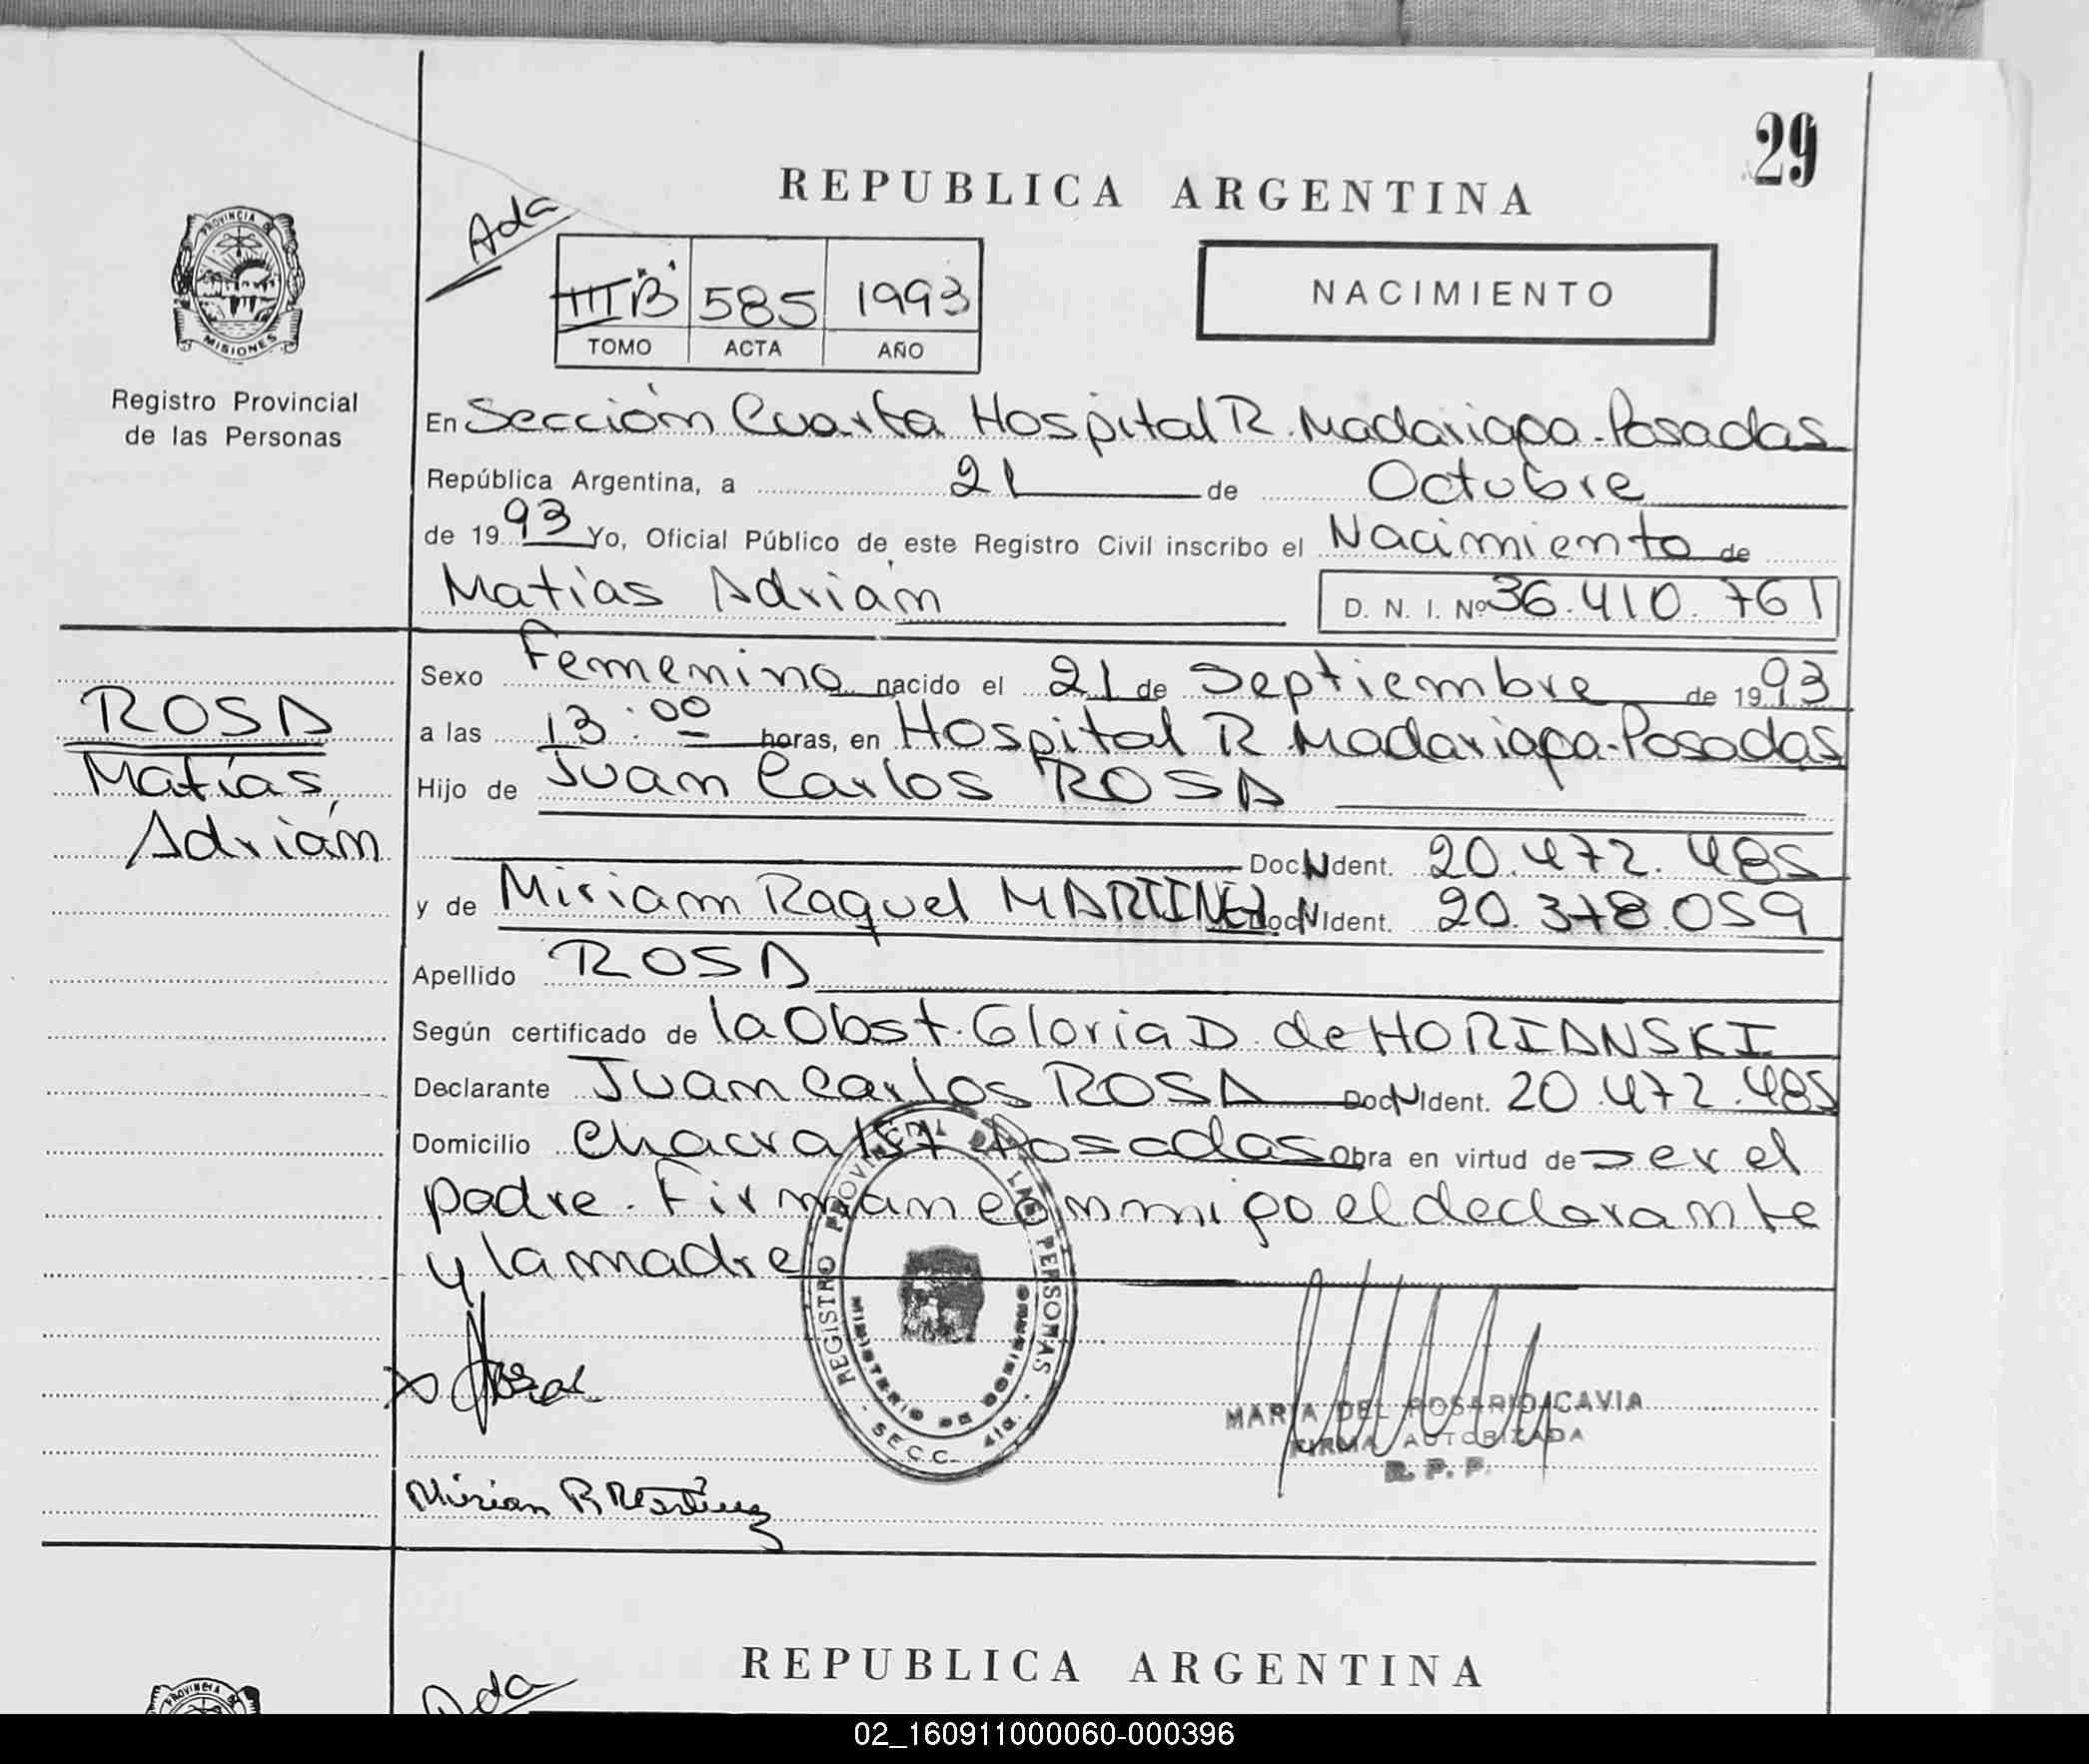 29
REPUBLICA ARGENTINA
Ada
III "B" 585 1993
TOMO ACTA AÑO
NACIMIENTO
PROVINCIA DE
MISIONES
Registro Provincial
de las Personas
En Sección Cuarta Hospital R. Madariaga - Posadas
República Argentina, a 21 de Octubre
de 1993 Yo, Oficial Público de este Registro Civil inscribo el Nacimiento de
Matías Adrián D. N. I. Nº 36.410.761
ROSA
Matías,
Adrián
Sexo Femenino nacido el 21 de Septiembre de 1993
a las 13:00 horas, en Hospital R. Madariaga - Posadas
Hijo de Juan Carlos ROSA
Doc. N Ident. 20.472.485
y de Miriam Raquel MARTINEZ Doc. N Ident. 20.378.059
Apellido ROSA
Según certificado de la Obst. Gloria D. de HORIANSKI
Declarante Juan Carlos ROSA Doc. N Ident. 20.472.485
Domicilio Chacra 157 Posadas Obra en virtud de ser el
padre. Firman conmigo el declarante
y la madre
REGISTRO PROVINCIAL DE LAS PERSONAS
MINISTERIO DE GOBIERNO
- SECC. 4ta. -
MARIA DEL ROSARIO CAVIA
FIRMA AUTORIZADA
R. P. P.
Mirian R Martinez
REPUBLICA ARGENTINA
Ada
PROVINCIA
02_160911000060-000396